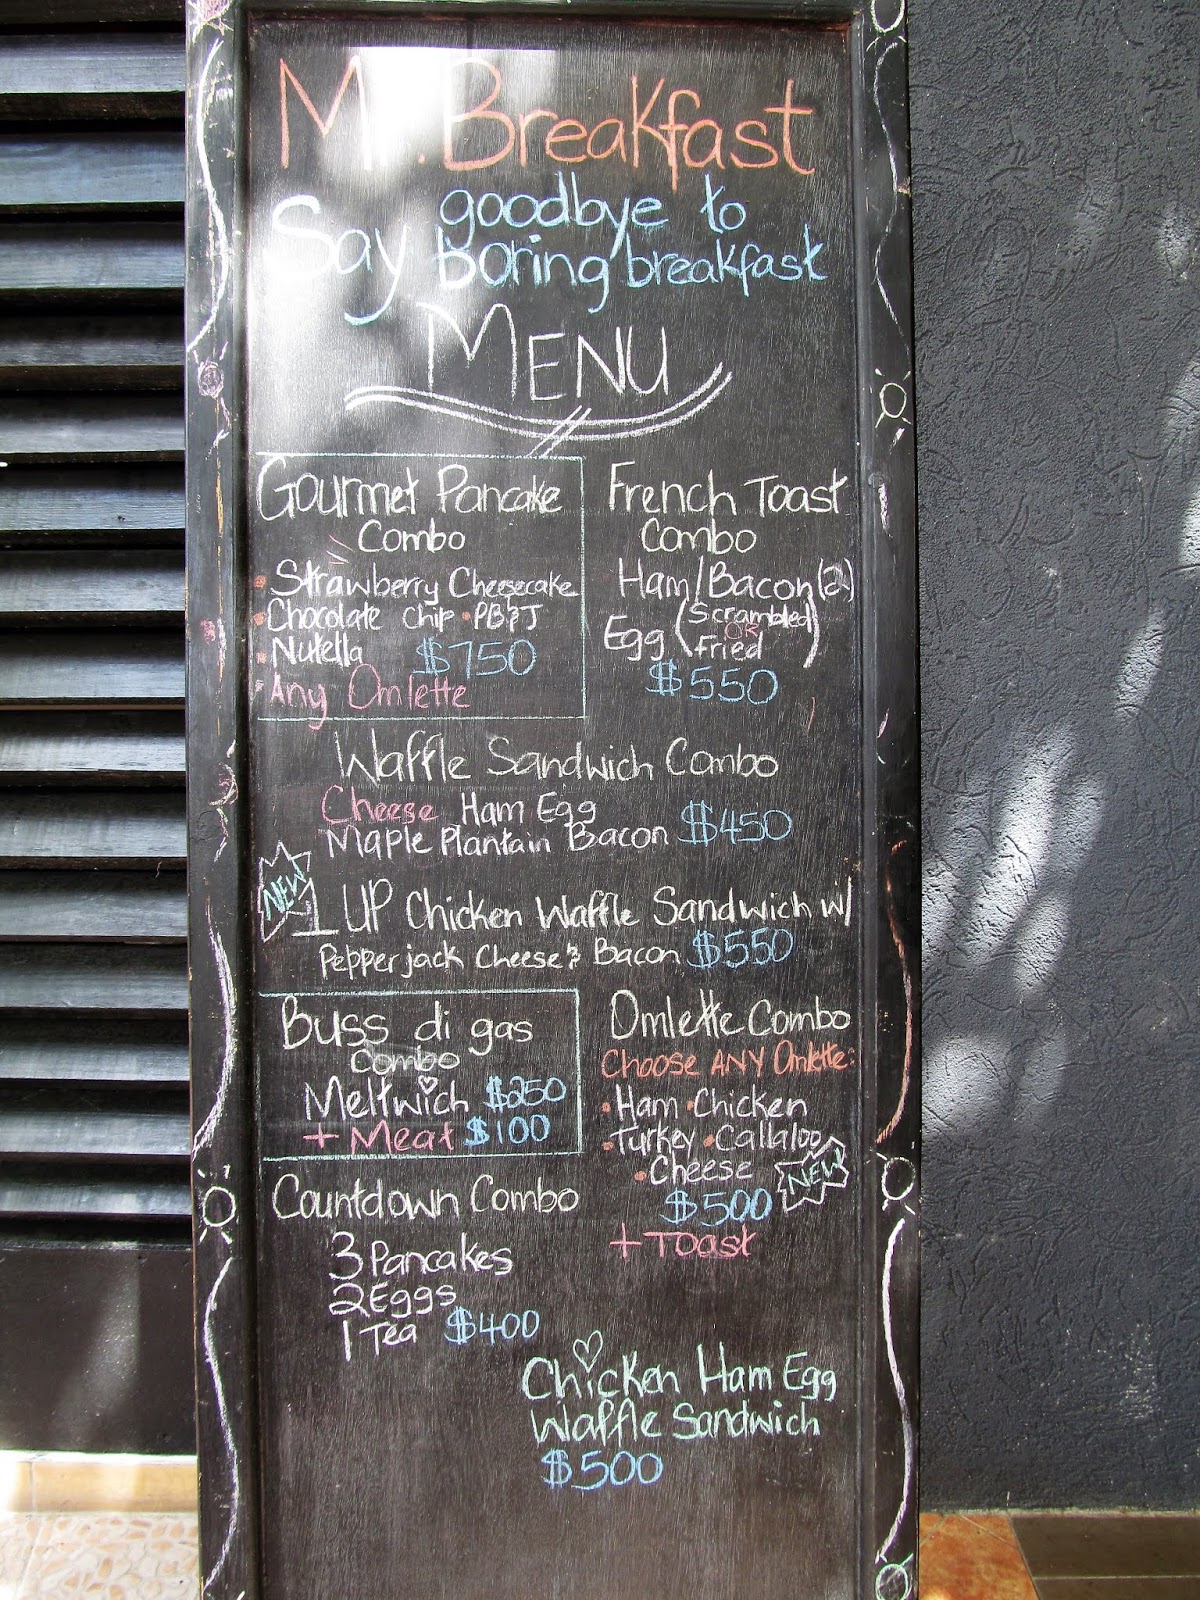 Mr. Breakfast
Say goodbye to
boring breakfast
MENU
Gourmet Pancake
Combo
• Strawberry Cheesecake
• Chocolate Chip • PB&J
• Nutella $750
• Any Omlette
French Toast
Combo
Ham/Bacon (2)
Egg (Scrambled
OR
Fried)
$550
Waffle Sandwich Combo
Cheese Ham Egg
Maple Plantain Bacon $450
NEW
1 UP Chicken Waffle Sandwich w/
Pepperjack Cheese & Bacon $550
Buss di gas
Combo
Meltwich $250
+ Meat $100
Omlette Combo
Choose ANY Omlette:
• Ham • Chicken
• Turkey • Callaloo
• Cheese NEW
$500
+ Toast
Countdown Combo
3 Pancakes
2 Eggs
1 Tea $400
Chicken Ham Egg
Waffle Sandwich
$500